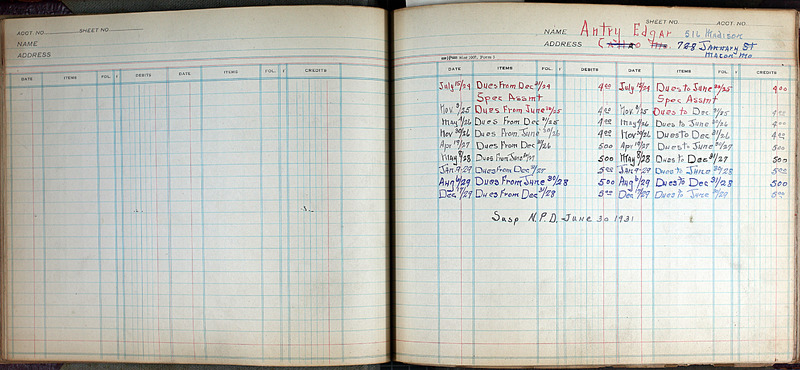 ACCT. NO. SHEET NO.
NAME
ADDRESS
DATE ITEMS FOL. DEBITS DATE ITEMS FOL. CREDITS
SHEET NO. ACCT. NO.
NAME Antry Edgar 516 Madison
ADDRESS 728 January St
Macon Mo
DATE ITEMS FOL. DEBITS DATE ITEMS FOL. CREDITS
July 15/24 Dues From Dec 31/24 4 00 July 15/24 Dues to June 30/25 4 00
Spec Assmt Spec Assmt
Nov 3/25 Dues From June 30/25 4 00 Nov. 3/25 Dues to Dec 31/25 4 00
May 4/26 Dues From Dec 31/25 4 00 May 4/26 Dues to June 30/26 4 00
Nov 30/26 Dues From June 30/26 4 00 Nov 30/26 Dues to Dec 31/26 4 00
Apr 19/27 Dues From Dec 31/26 5 00 Apr 19/27 Dues to June 30/27 5 00
May 8/28 Dues From June 30/27 5 00 May 8/28 Dues to Dec 31/27 5 00
Jan 9-29 Dues From Dec 31/27 5 00 Jan 9-29 Dues to June 30/28 5 00
Aug 6/29 Dues From June 30/28 5 00 Aug 6/29 Dues to Dec 31/28 5 00
Dec 17/29 Dues From Dec 31/28 5 00 Dec 17/29 Dues to June 30/29 5 00
Susp N.P.D. June 30 1931